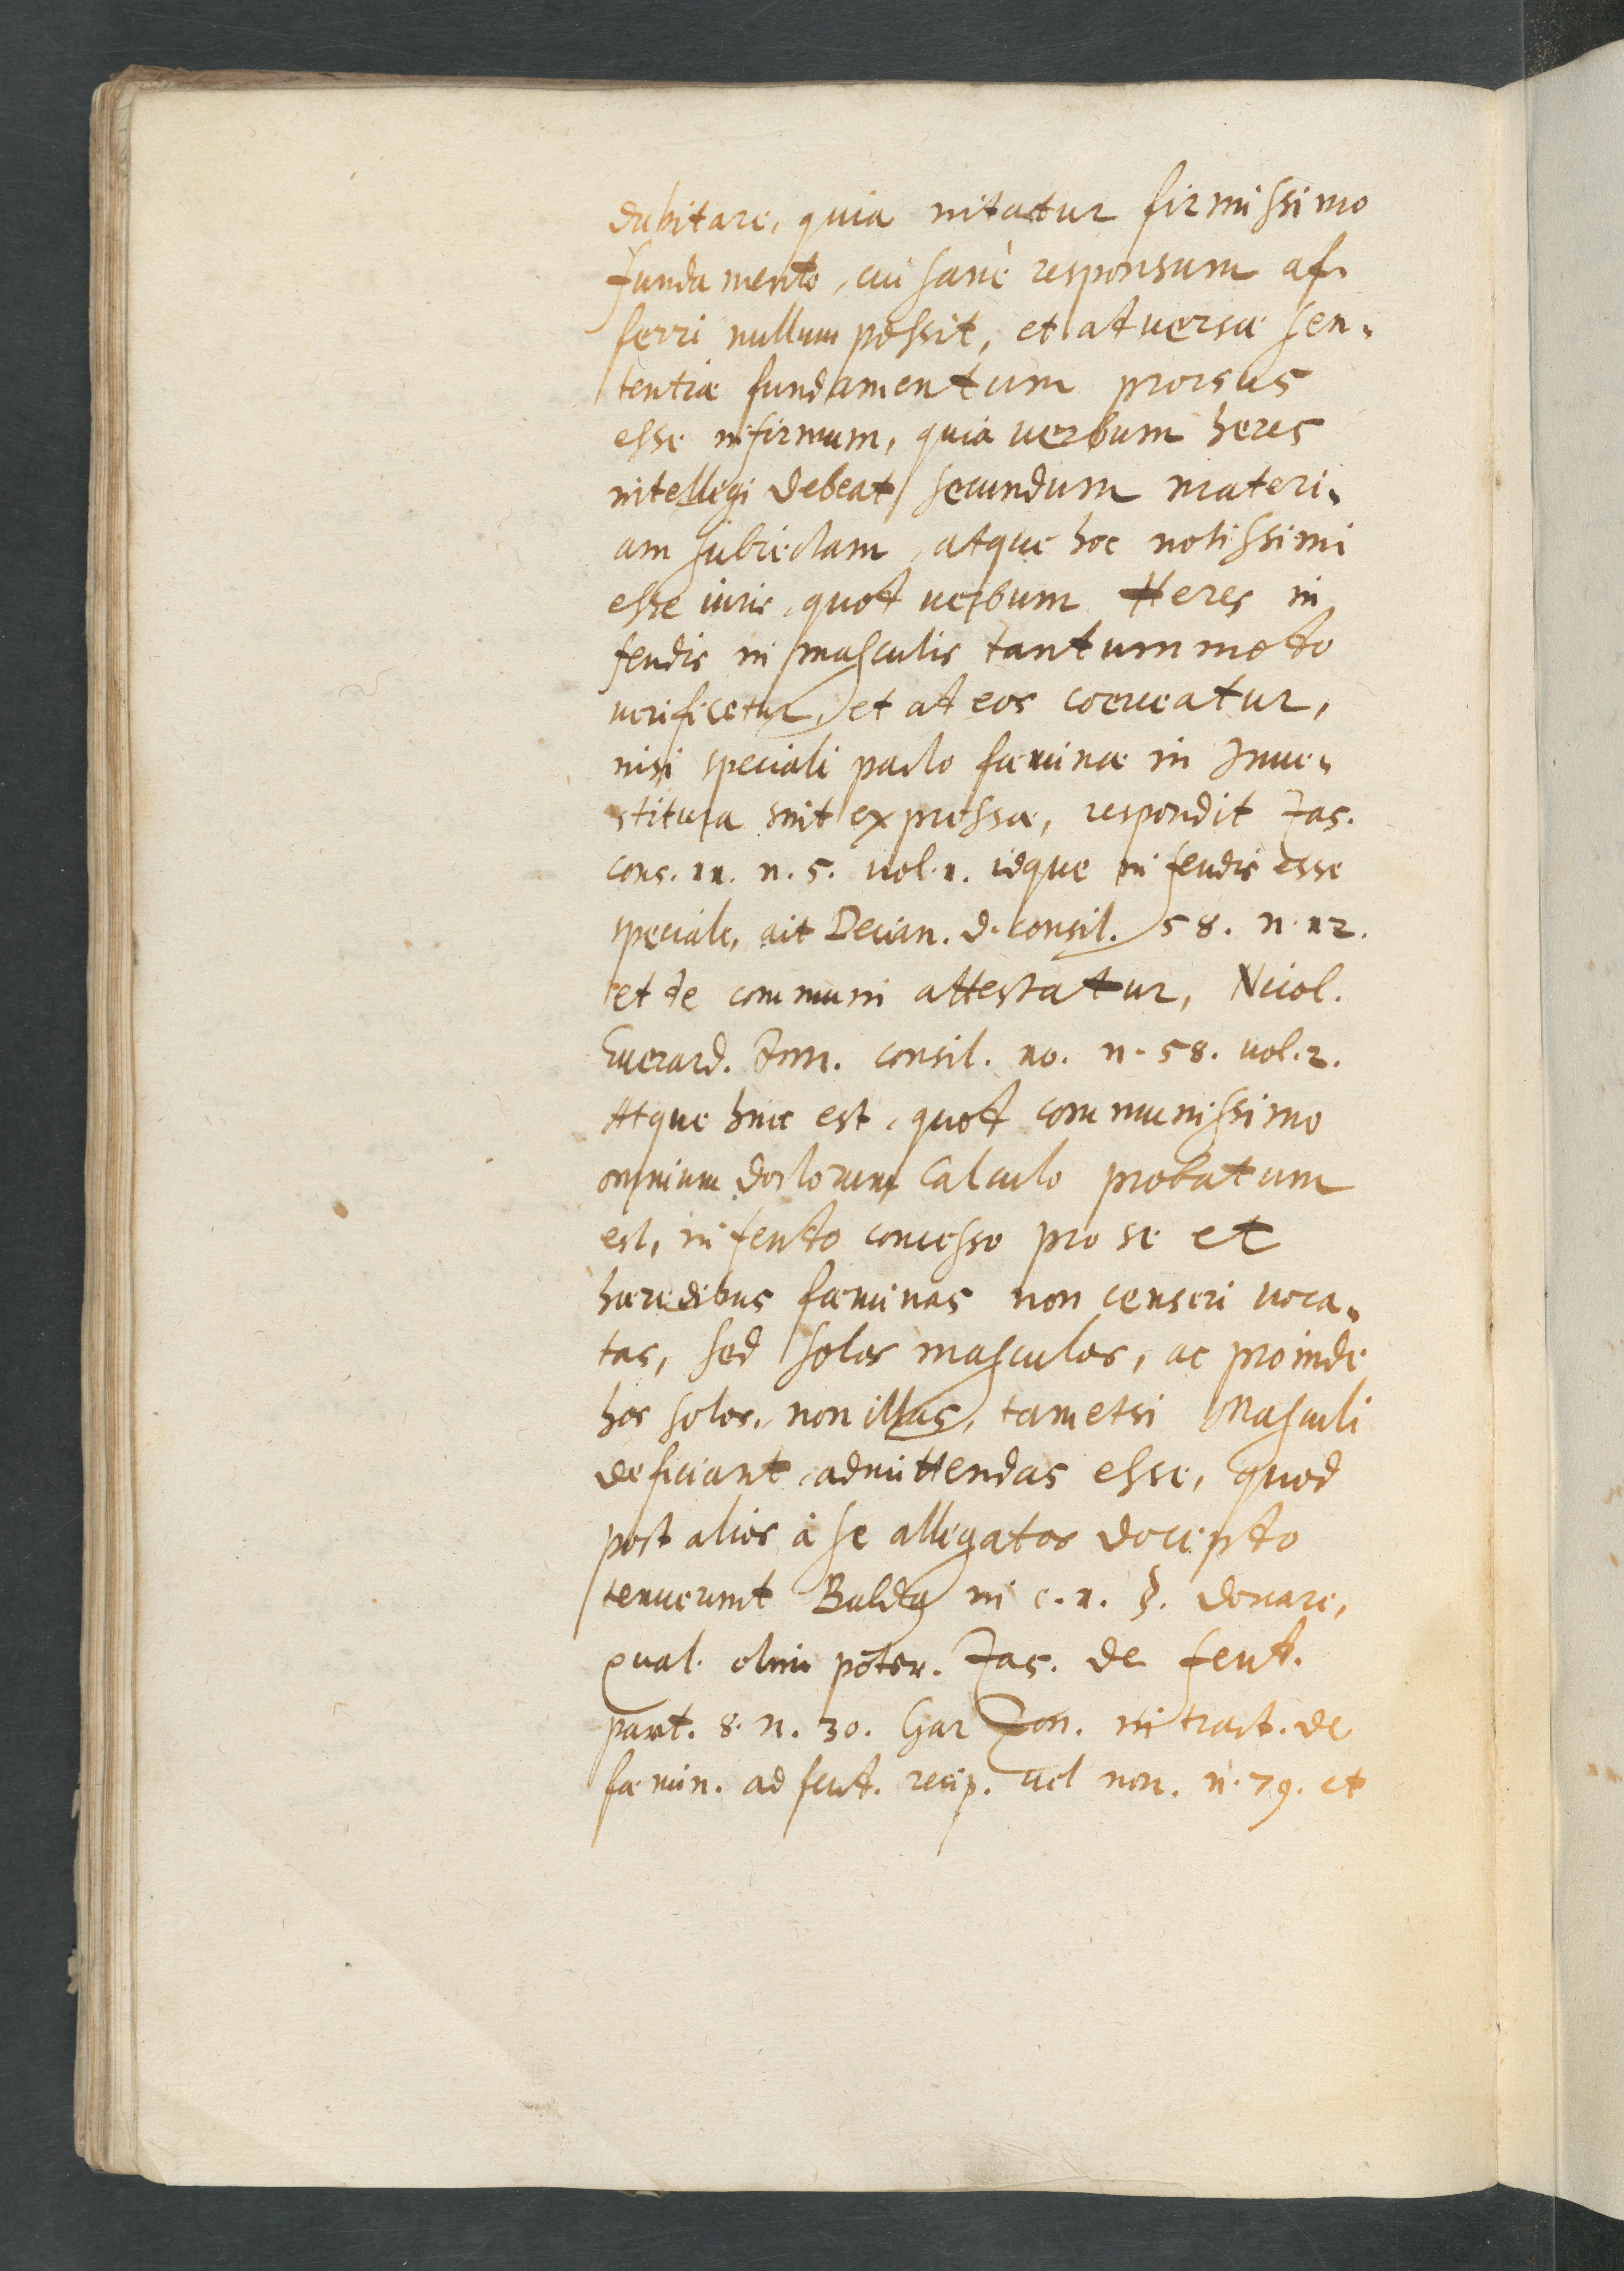 dubitare, quia nitatur firmissimo
fundamento, cui sanè responsum af-
ferri nullum possit, et adversae sen-
tentiae fundamentum prorsus
esse infirmum, quia verbum heres
intelligi debeat secundum materi-
am subiectam, atque hoc notissimi
esse iuris, quod verbum Heres in
feudis in masculis tantummodo
verificetur, et ad eos coerceatur,
nisi speciali pacto faeminae in Inve-
stitura sint expressae, respondit Jas.
cons. 11. n. 5. vol. 1. idque in feudis esse
speciale, ait Decian. d. consil. 58. n. 12.
et de communi attestatur, Nicol.
Everard. Jun. consil. 10. n. 58. vol. 2.
Atque hinc est, quod communissimo
omnium doctorum calculo probatum
est, in feudo concesso pro se et
haeredibus faeminas non censeri voca-
tas, sed solos masculos, ac proinde
hos solos, non illas, tametsi Masculi
deficiant, admittendas esse, quod
post alios à se allegatos docendo
tenuerunt Baldus in c. 1. §. donare,
qual. olim poter. Jas. de feud.
part. 8. n. 30. Gar Zon. in tract. de
faemin. ad feud. recip. vel non. n. 79. et